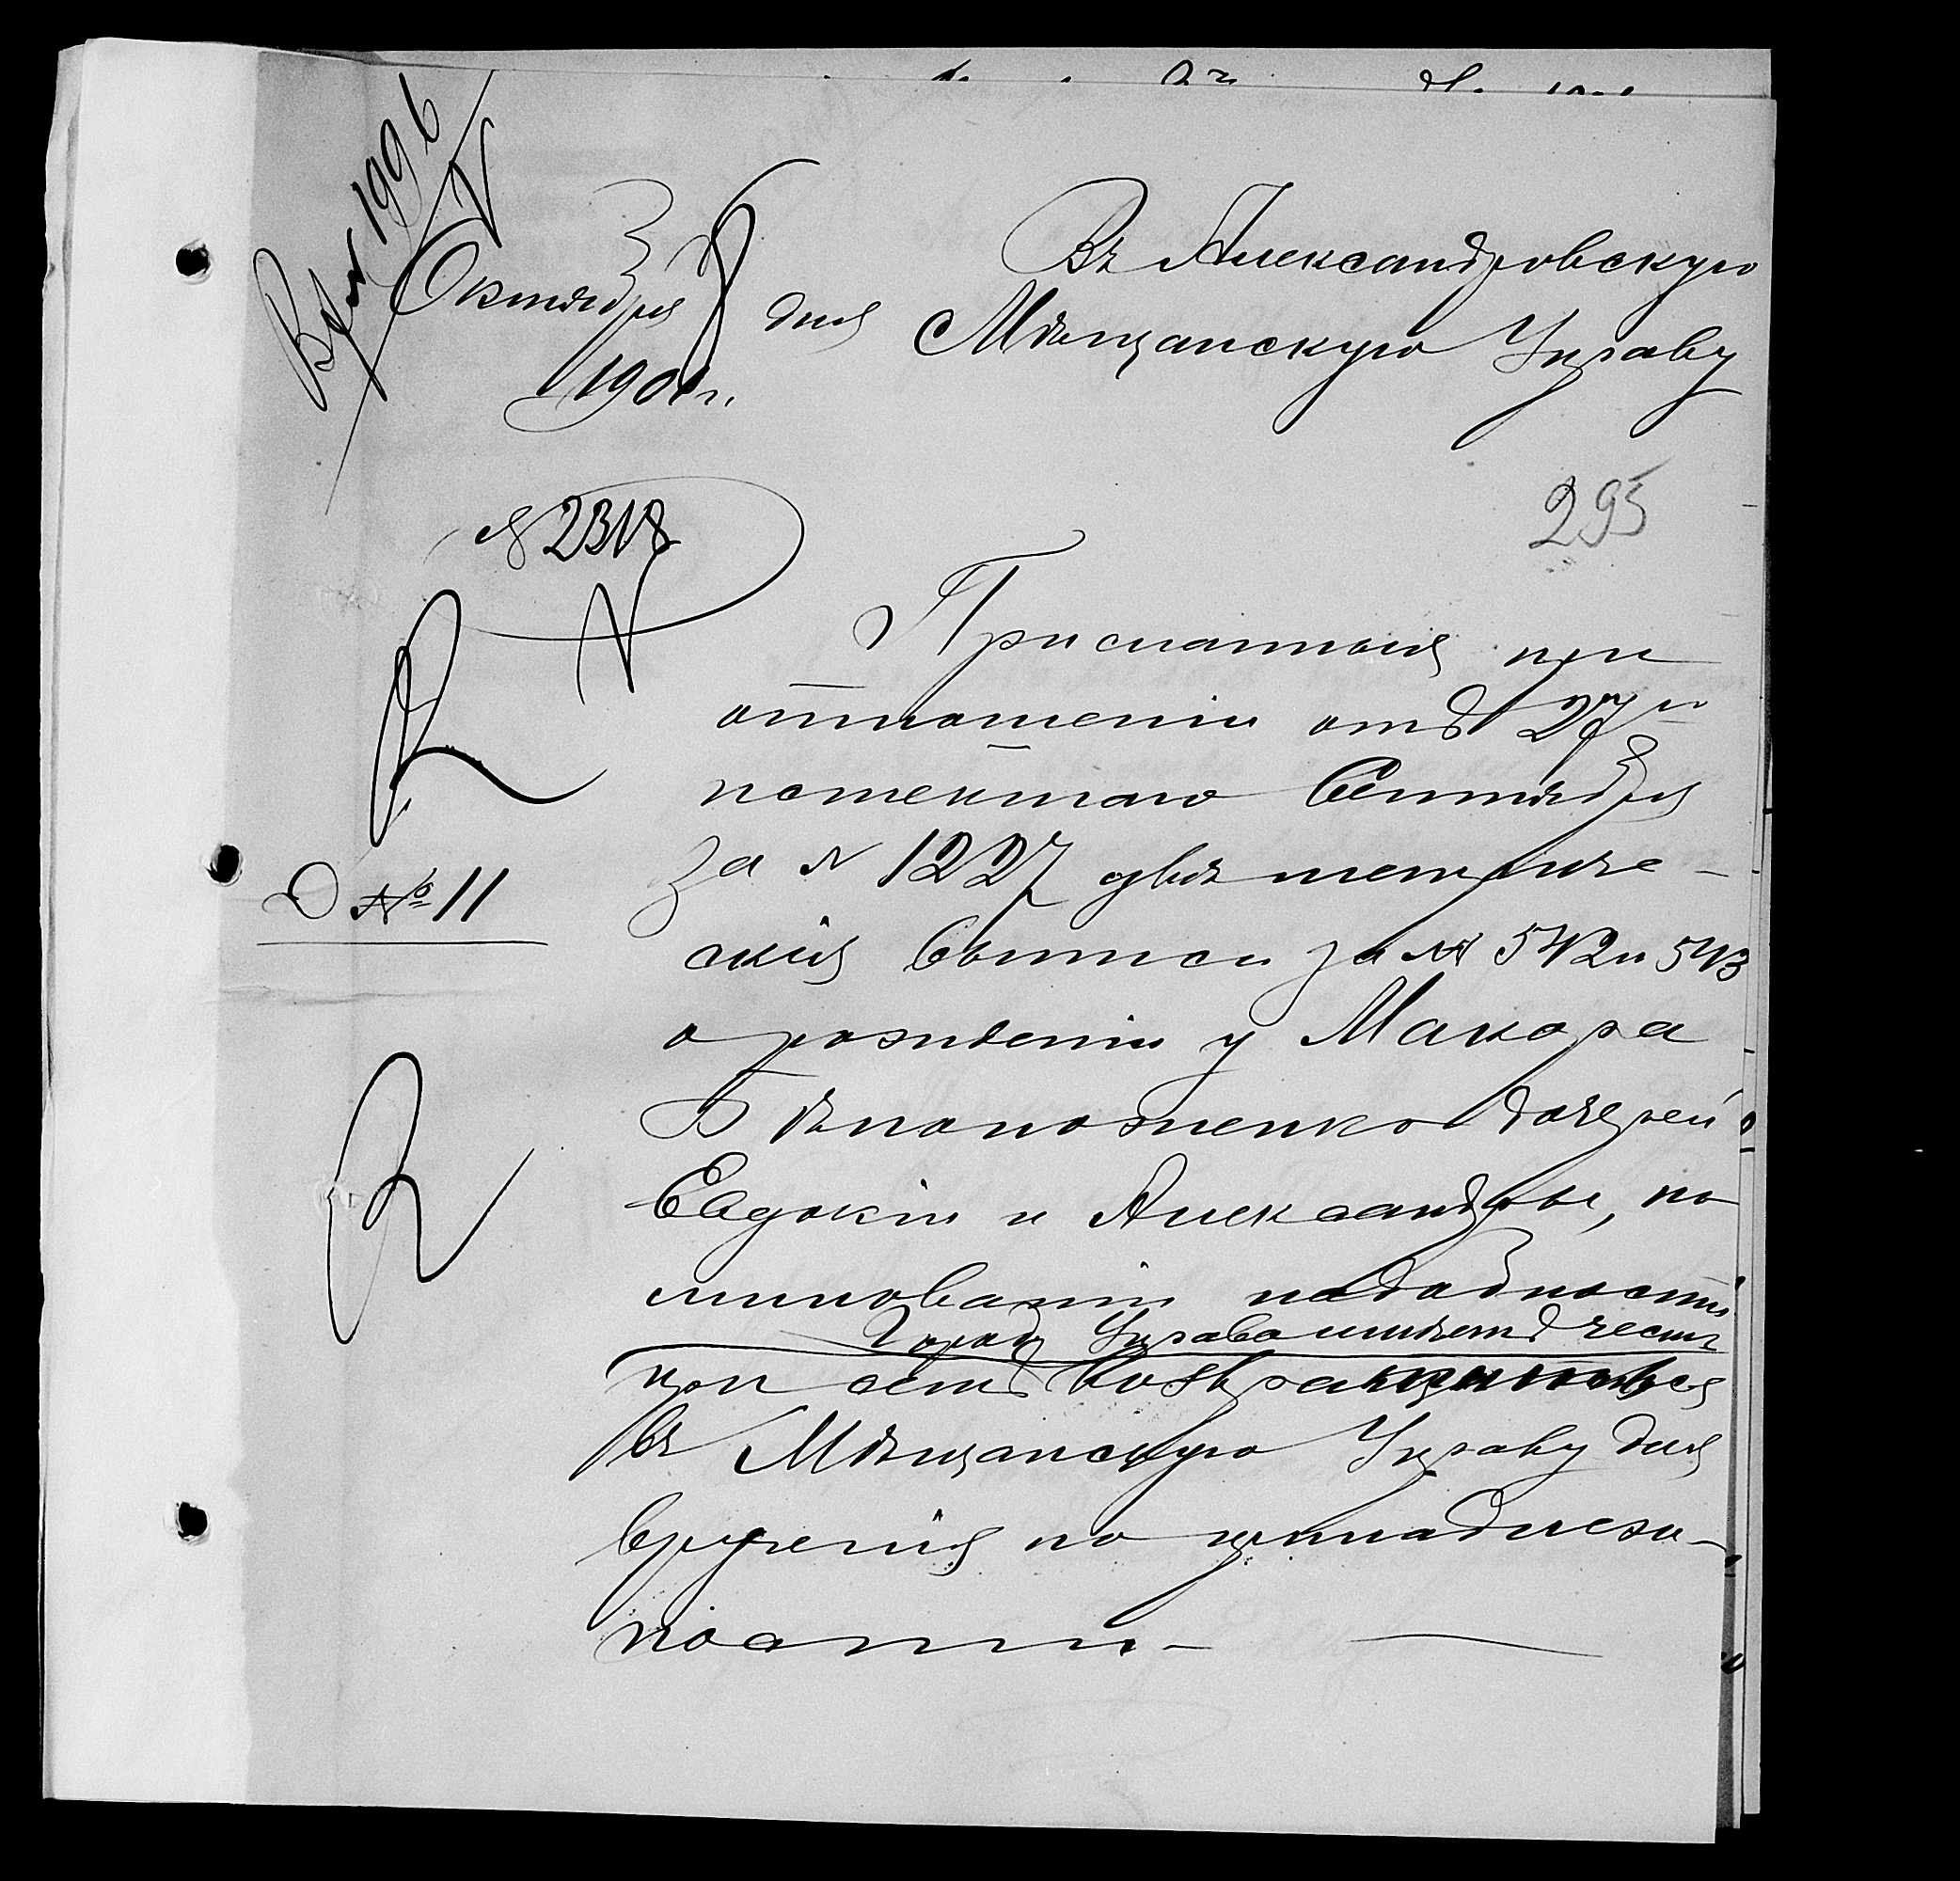 1996
Октября 8 дня
1901 г.
№ 2318
Въ Александровскую
Мѣщанскую Управу
295
Присланныя при
отношеніи отъ 27го
истекшаго Сентября
за № 1227 двѣ метриче-
скія выписи за №№ 542 и 543
о рожденіи у Макара
Бѣлоноженко дочерей
Евдокіи и Александры, по
минованіи надобности
Город. Управа имѣетъ честь
при семъ возвратить
въ Мѣщанскую Управу для
врученія по принадлеж-
ности.
Д № 11